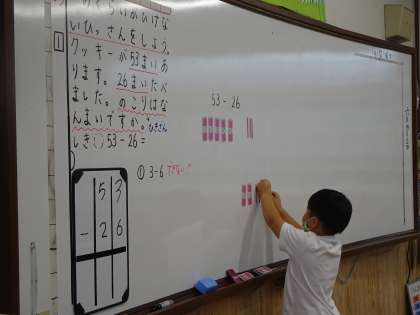 いひっさんをしよう。
1
クッキーが53まいあ
ります。26まいたべ
ました。のこりはな
んまいですか。ひきざん
しき 53-26=
53-26
① 3-6 できない
5 3
- 2 6